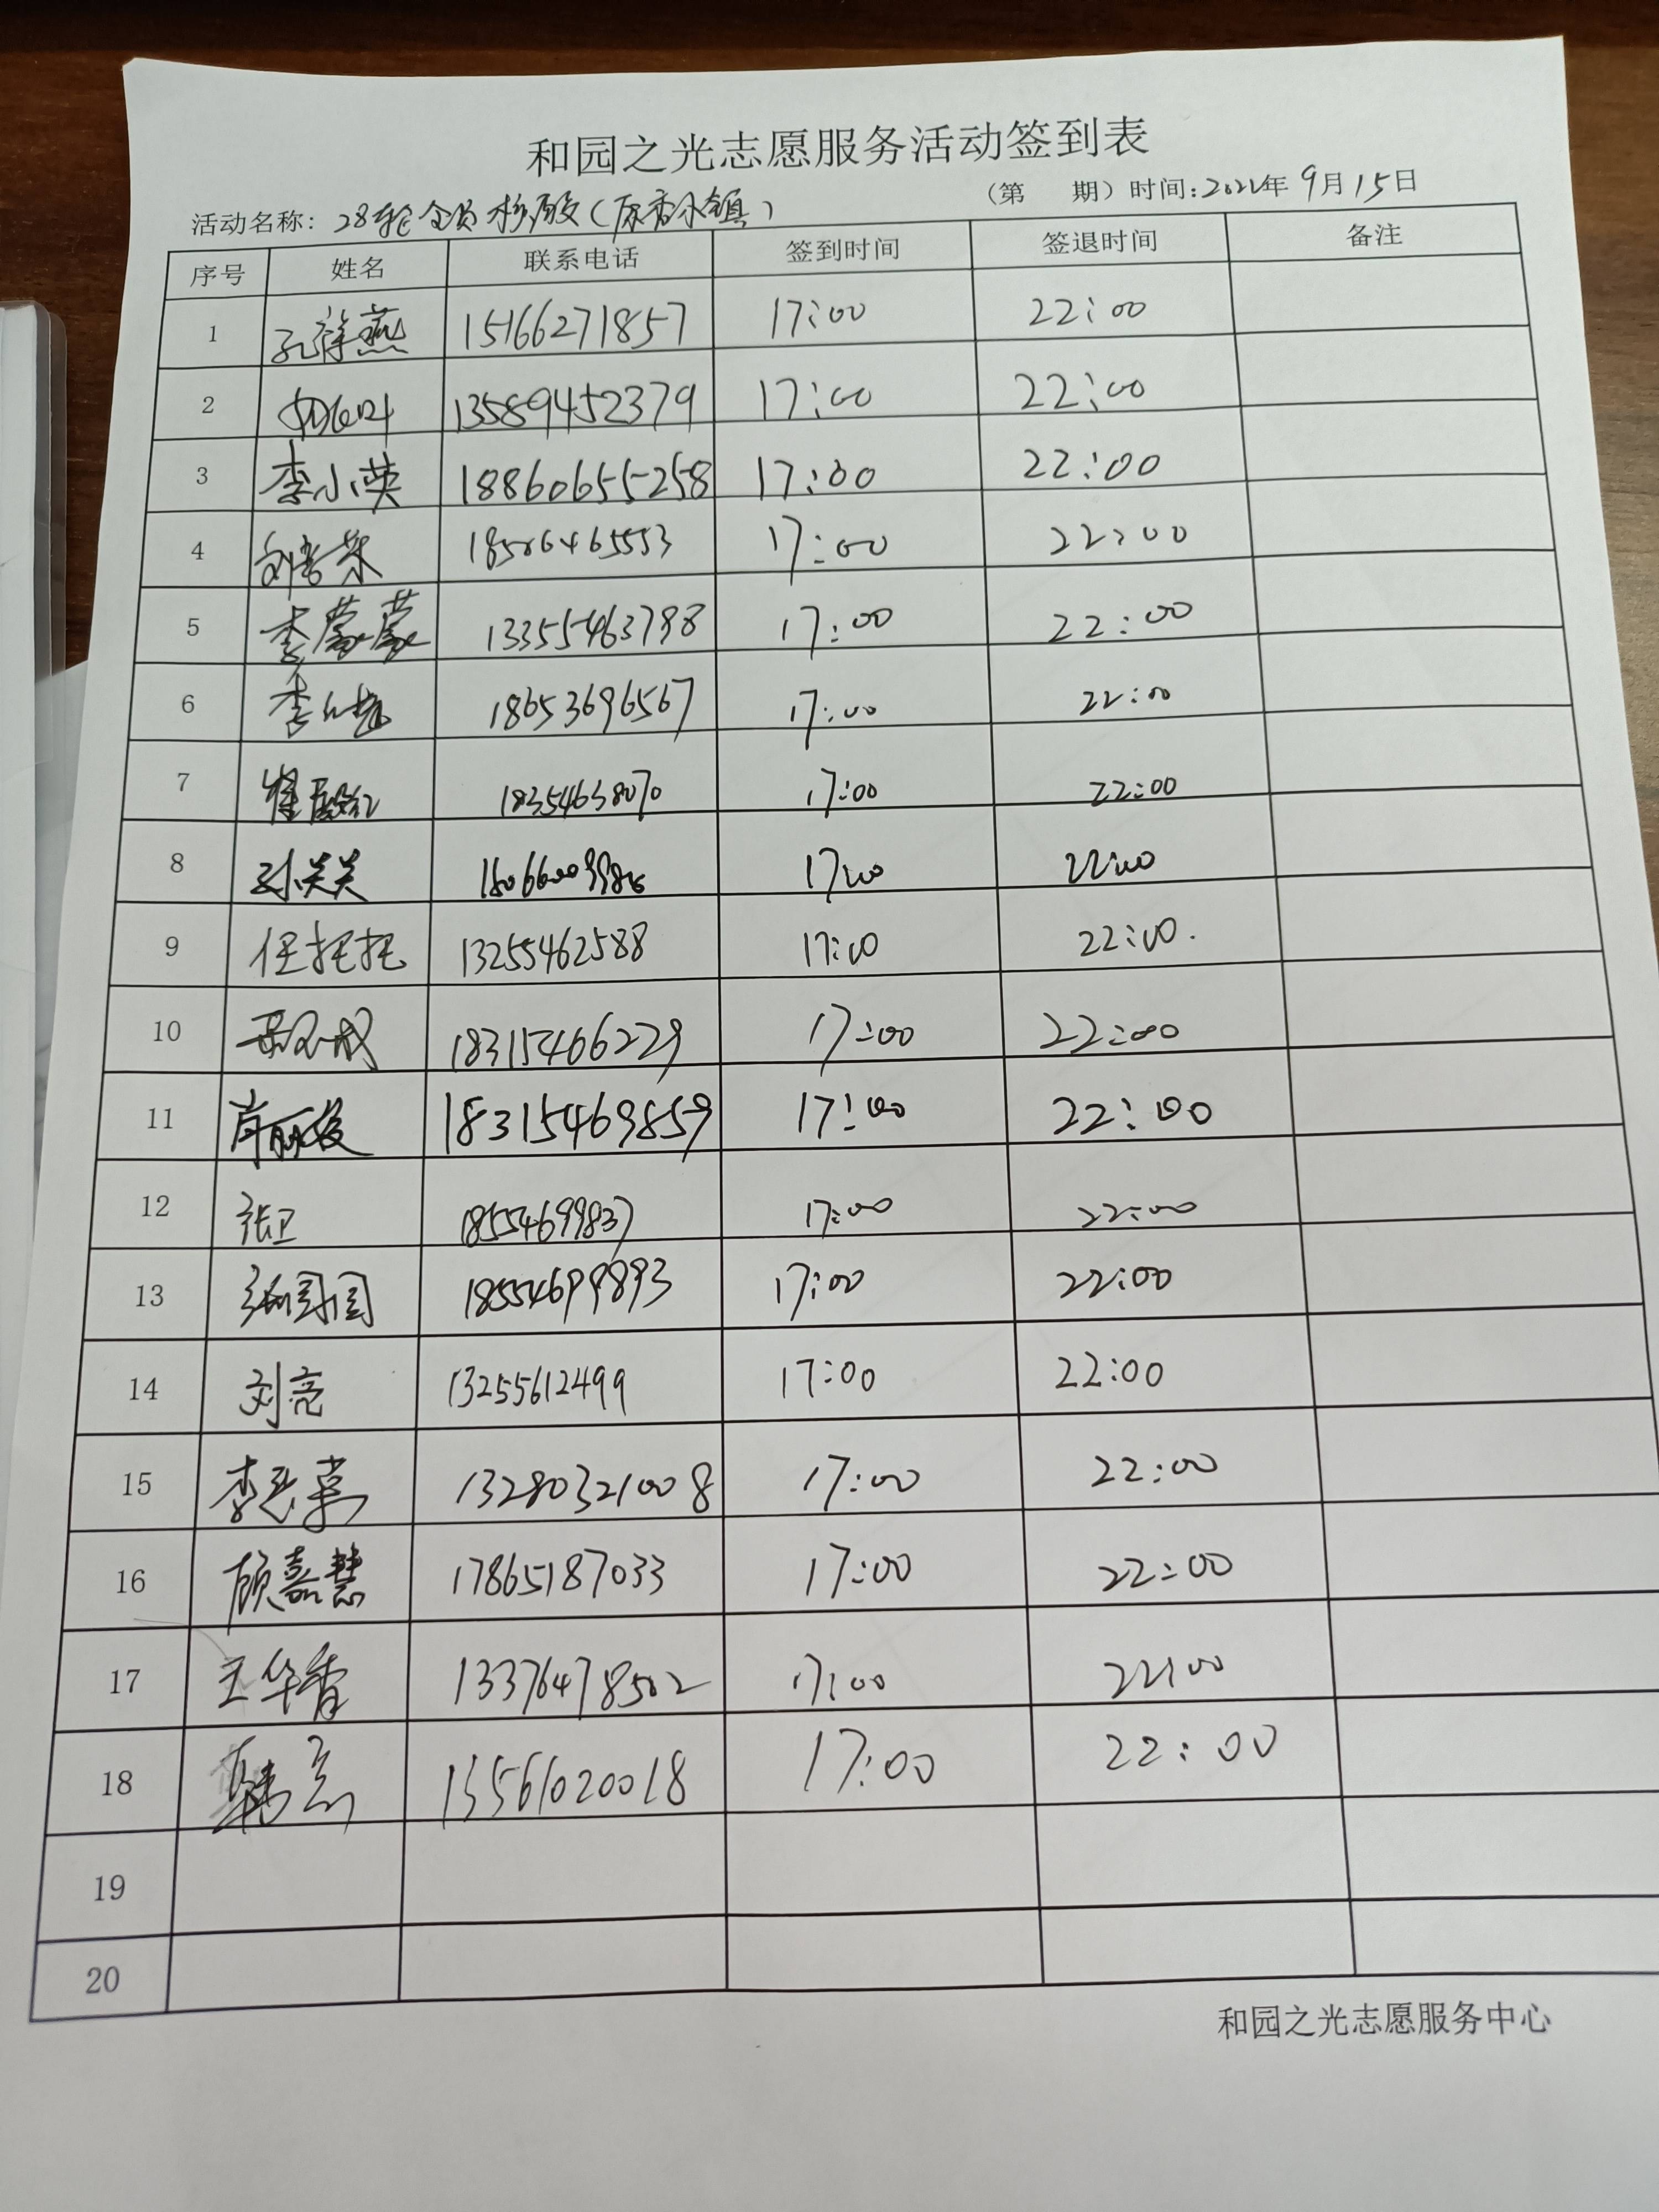 和园之光志愿服务活动签到表
活动名称：28轮全员核酸（香水镇） （第 期）时间：2022年9月15日
序号 姓名 联系电话 签到时间 签退时间 备注
1 孔祥燕 15166271857 17:00 22:00
2 13589452379 17:00 22:00
3 李小英 18860655258 17:00 22:00
4 17:00 22:00
5 李蒙蒙 13355463798 17:00 22:00
6 18653696567 17:00 22:00
7 18354638070 17:00 22:00
8 孙关关 17:00 22:00
9 任托托 13255462588 17:00 22:00.
10 18315466229 17:00 22:00
11 肖丽俊 18315469859 17:00 22:00
12 张卫 18554699837 17:00 22:00
13 18554699893 17:00 22:00
14 刘亮 13255612499 17:00 22:00
15 13280321008 17:00 22:00
16 顾嘉慧 17865187033 17:00 22:00
17 王华香 13376478502 17:00 22:00
18 13561020018 17:00 22:00
19
20
和园之光志愿服务中心